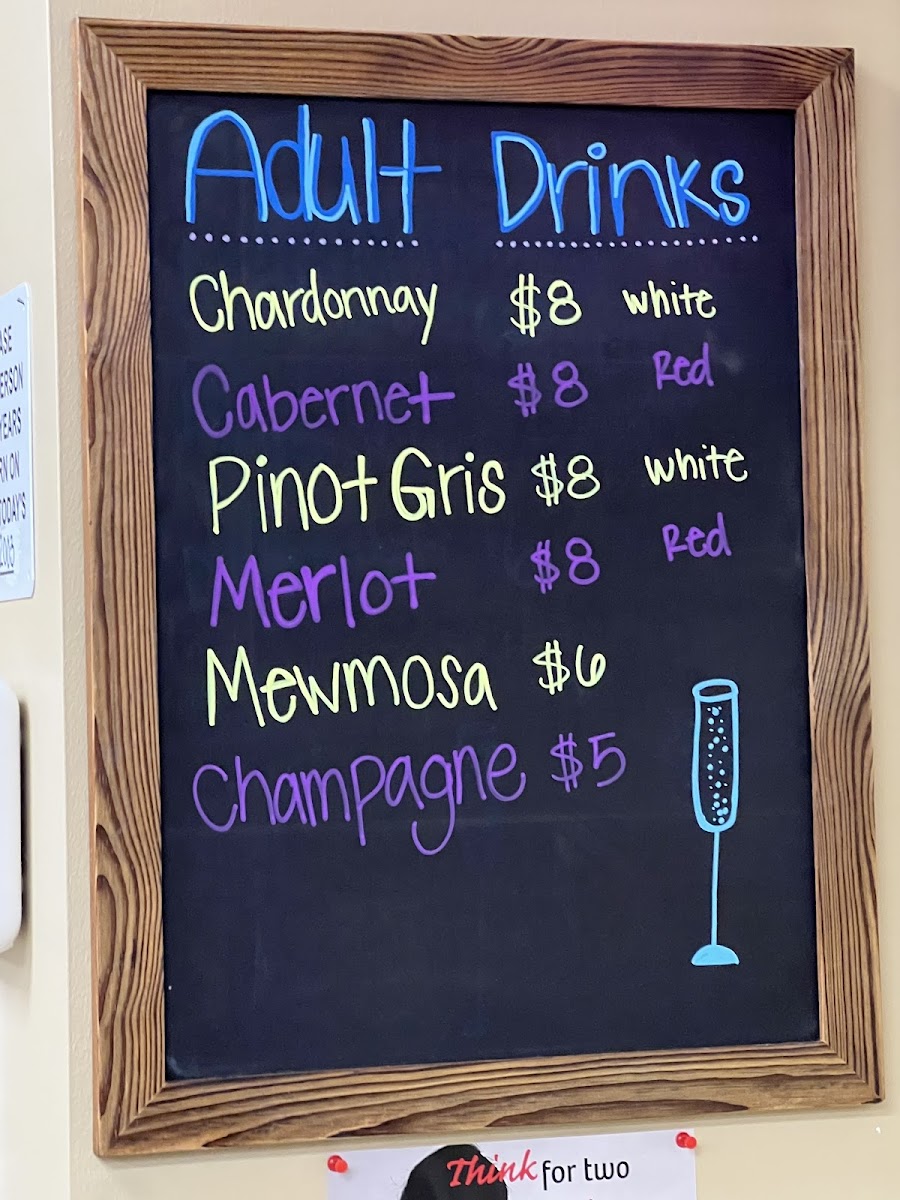 Adult Drinks
Chardonnay $8 white
Cabernet $8 Red
Pinot Gris $8 white
Merlot $8 Red
Mewmosa $6
Champagne $5
Think for two